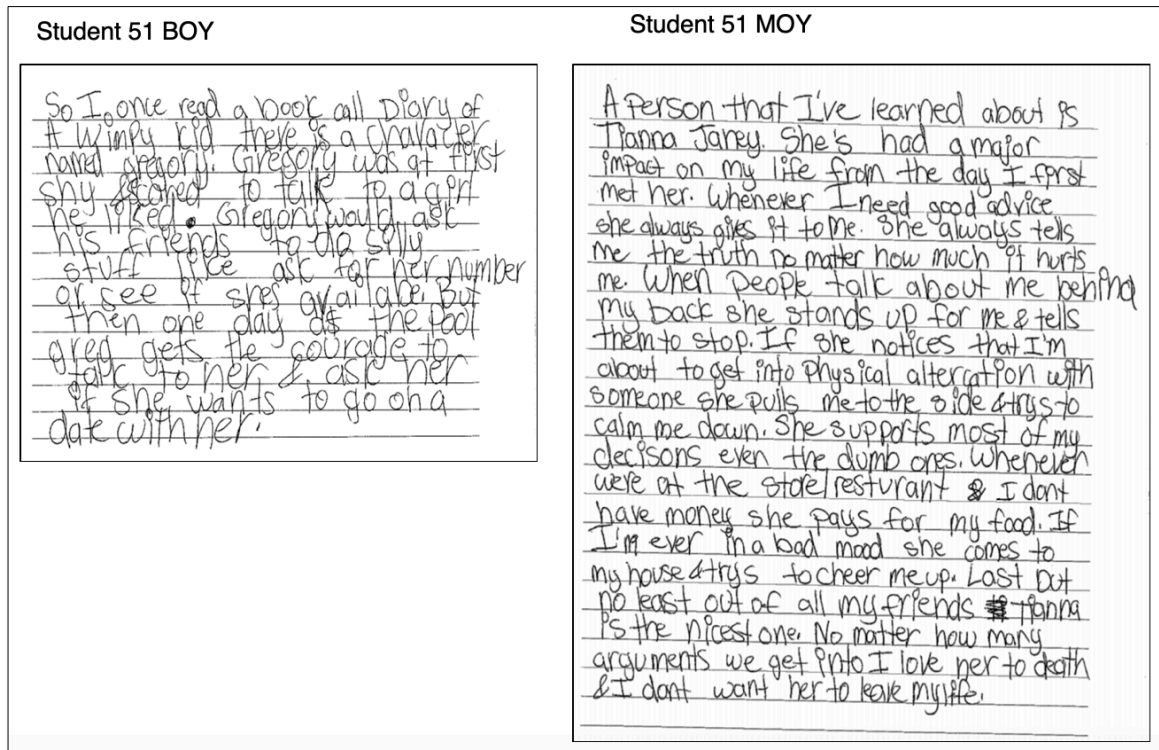 Student 51 BOY
So I once read a book call Diary of
A Wimpy Kid there is a character
named gregory. Gregory was at first
shy & scared to talk to a girl
he liked. Gregory would ask
his friends to do silly
stuff like ask for her number
or see if shes availabe. But
then one day at the pool
greg gets the courage to
talk to her & ask her
if she wants to go on a
date with her.
Student 51 MOY
A Person that I've learned about is
Tianna Janey. She's had a major
impact on my life from the day I first
met her. Whenever I need good advice
she always gives it to me. She always tells
me the truth no matter how much it hurts
me. When people talk about me behind
my back she stands up for me & tells
them to stop. If she notices that I'm
about to get into Physical altercation with
someone she pulls me to the side & trys to
calm me down. She supports most of my
decisons even the dumb ones. Whenever
were at the store/resturant & I dont
have money she pays for my food. If
I'm ever in a bad mood she comes to
my house & trys to cheer me up. Last but
no least out of all my friends Tianna
is the nicest one. No matter how many
arguments we get into I love her to death
& I dont want her to leave my life.